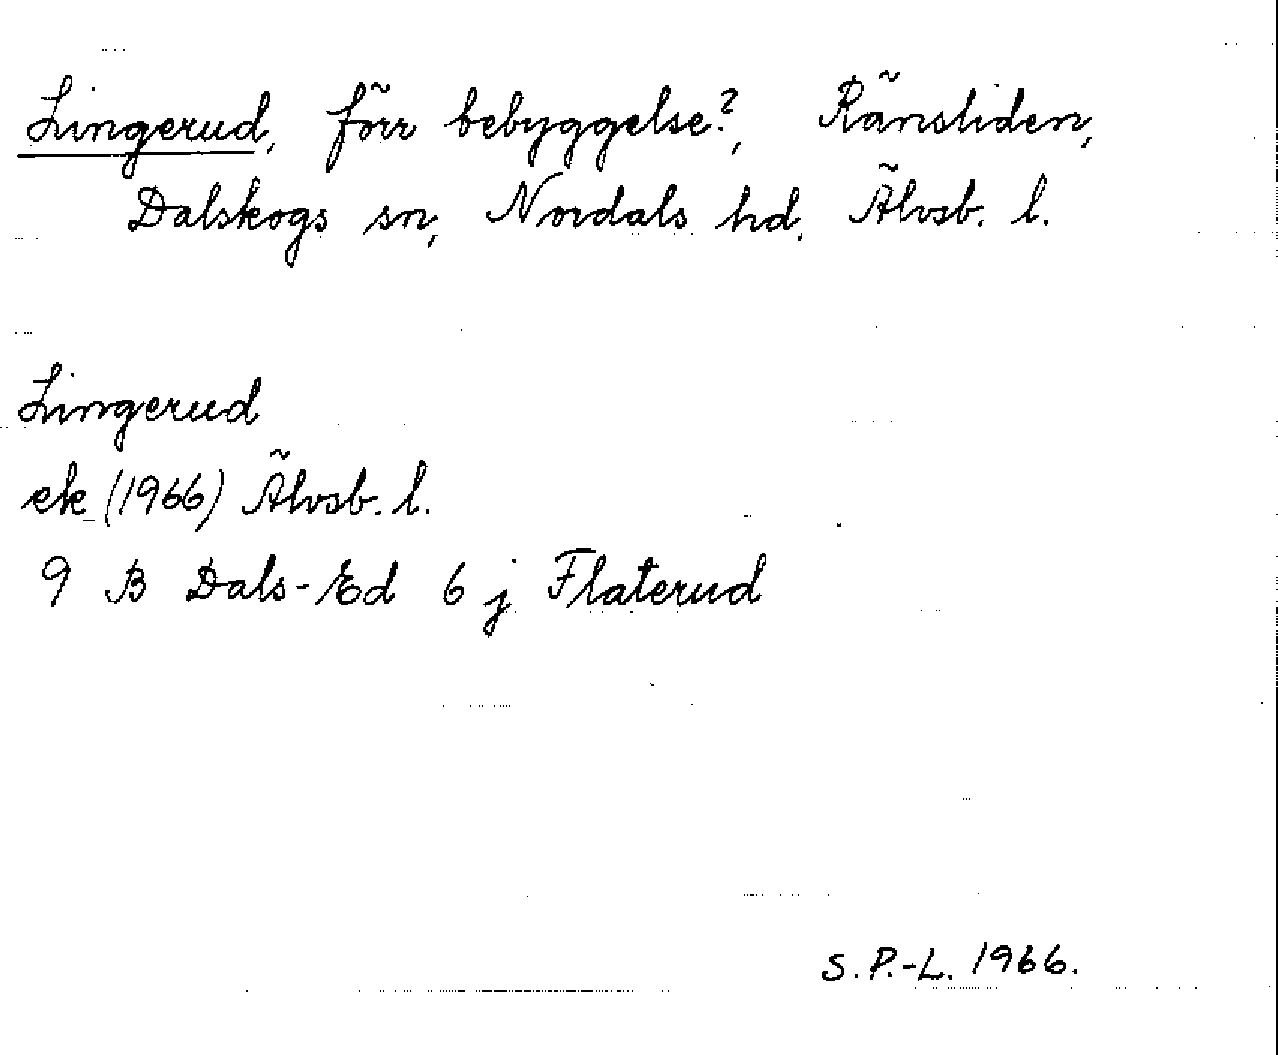 Lingerud, förr bebyggelse?, Ränsliden,
Dalskogs sn, Nordals hd, Älvsb. l.
Lingerud
ek (1966) Älvsb. l.
9 B Dals-Ed 6 j Flaterud
S. P.-L. 1966.